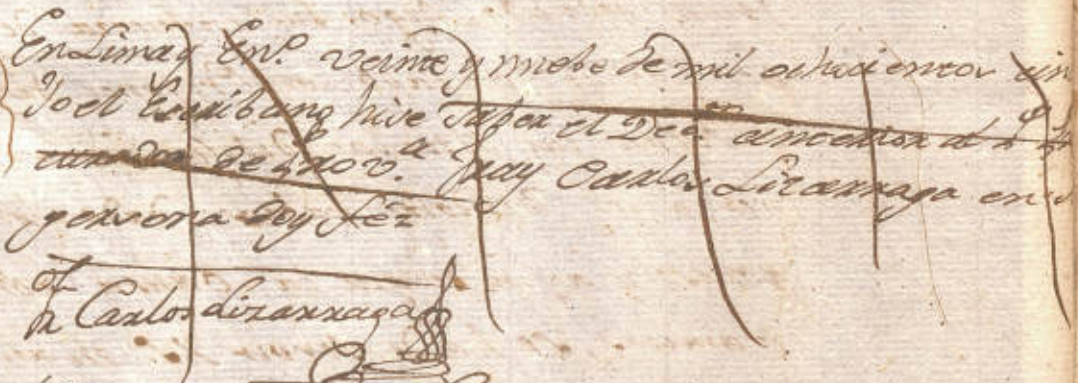 En Lima y En.º veinte y nuebe de mil ochocientos
Yo el Escribano hise saber el Dec.to anterior al R. P.
curador de Prov.a Fray Carlos Lizarraga en
persona doy feé
Fr. Carlos Lizarraga